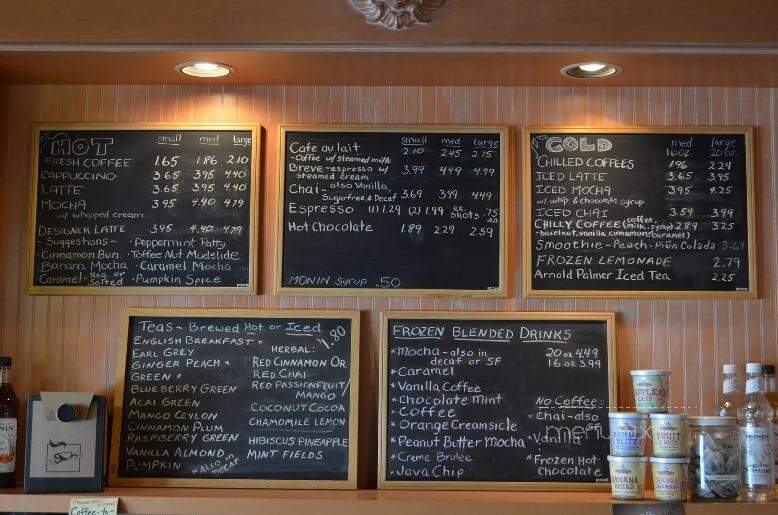 HOT small med large
FRESH COFFEE 1.65 1.86 2.10
CAPPUCCINO 3.65 3.95 4.40
LATTE 3.65 3.95 4.40
MOCHA 3.95 4.40 4.79
w/ whipped cream
DESIGNER LATTE 3.95 4.40 4.79
~Suggestions~ ~Peppermint Patty
~Cinnamon Bun ~Toffee Nut Mudslide
~Banana Mocha ~Caramel Mocha
~Caramel~ Reg. or Salted ~Pumpkin Spice
small med large
Cafe au lait 2.10 2.45 2.75
~Coffee w/ steamed milk
Breve~espresso w/ 3.99 4.49 4.99
steamed cream
Chai~also Vanilla, 3.69 3.99 4.49
Sugarfree, & Decaf
Espresso (1) 1.29 (2) 1.99 ex. shots .75 ea
Hot Chocolate 1.89 2.29 2.59
MONIN Syrup .50
COLD med large
16 oz 20 oz
CHILLED COFFEES 1.96 2.24
ICED LATTE 3.65 3.95
ICED MOCHA 3.95 4.25
w/ whip & chocolate syrup
ICED CHAI 3.59 3.99
CHILLY COFFEE (coffee, milk, syrup) 2.89 3.25
~hazelnut, vanilla, cinnamon, caramel)
Smoothie~Peach~Piña Colada 3.69
FROZEN LEMONADE 2.79
Arnold Palmer Iced Tea 2.25
TEAS~ Brewed Hot or Iced
1.80
ENGLISH BREAKFAST *
EARL GREY
GINGER PEACH *
GREEN *
BLUEBERRY GREEN
ACAI GREEN
MANGO CEYLON
CINNAMON PLUM
RASPBERRY GREEN
VANILLA ALMOND
PUMPKIN
*Also in decaf
HERBAL:
RED CINNAMON OR.
RED CHAI
RED PASSIONFRUIT/
MANGO
COCONUT COCOA
CHAMOMILE LEMON
HIBISCUS PINEAPPLE
MINT FIELDS
FROZEN BLENDED DRINKS
*Mocha~also in 20 oz 4.49
decaf or SF 16 oz 3.99
*Caramel
*Vanilla Coffee
*Chocolate Mint
*Coffee
*Orange Creamsicle
*Peanut Butter Mocha
*Creme Brulee
*Java Chip
No Coffee:
*Chai~also SF
*Vanilla
*Frozen Hot
Chocolate
menu
MONIN
Coffee-to-
BLITZ
FRUIT
BANANA
BREAD
MONIN